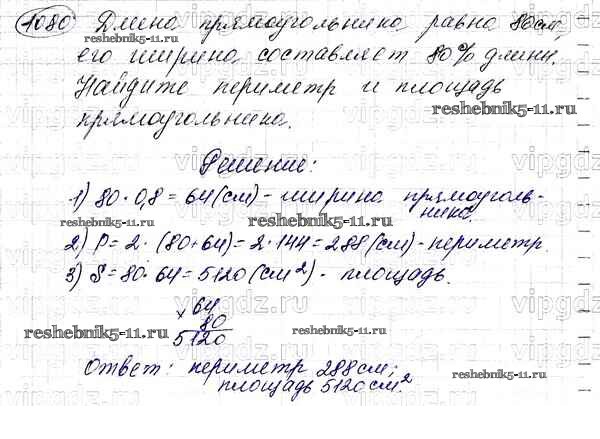 1080 Длина прямоугольника равна 80 см,
его ширина составляет 80% длины.
Найдите периметр и площадь
reshebnik5-11.ru
прямоугольника.
vipgdz.ru
Решение:
1) 80 · 0,8 = 64 (см) - ширина прямоуголь-
ника.
reshebnik5-11.ru reshebnik5-11.ru
2) P = 2 · (80+64) = 2 · 144 = 288 (см) - периметр.
3) S = 80 · 64 = 5120 (см²) - площадь.
vipgdz.ru
× 64
80
5120
reshebnik5-11.ru reshebnik5-11.ru
Ответ: периметр 288 см;
reshebnik5-11.ru
площадь 5120 см²